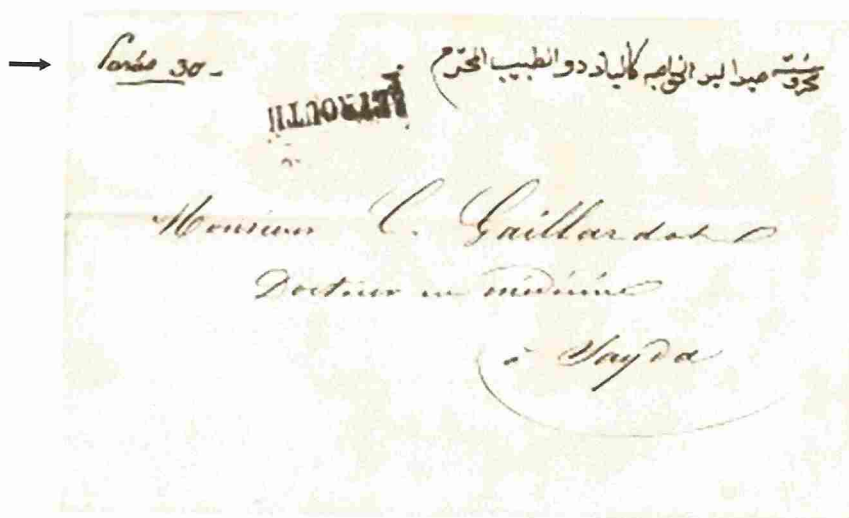 Parás 30-
الخواجه كالياردو الطبيب المحترم
BEYROUTH
Monsieur C. Gaillardot
Docteur en médécine
à Sayda